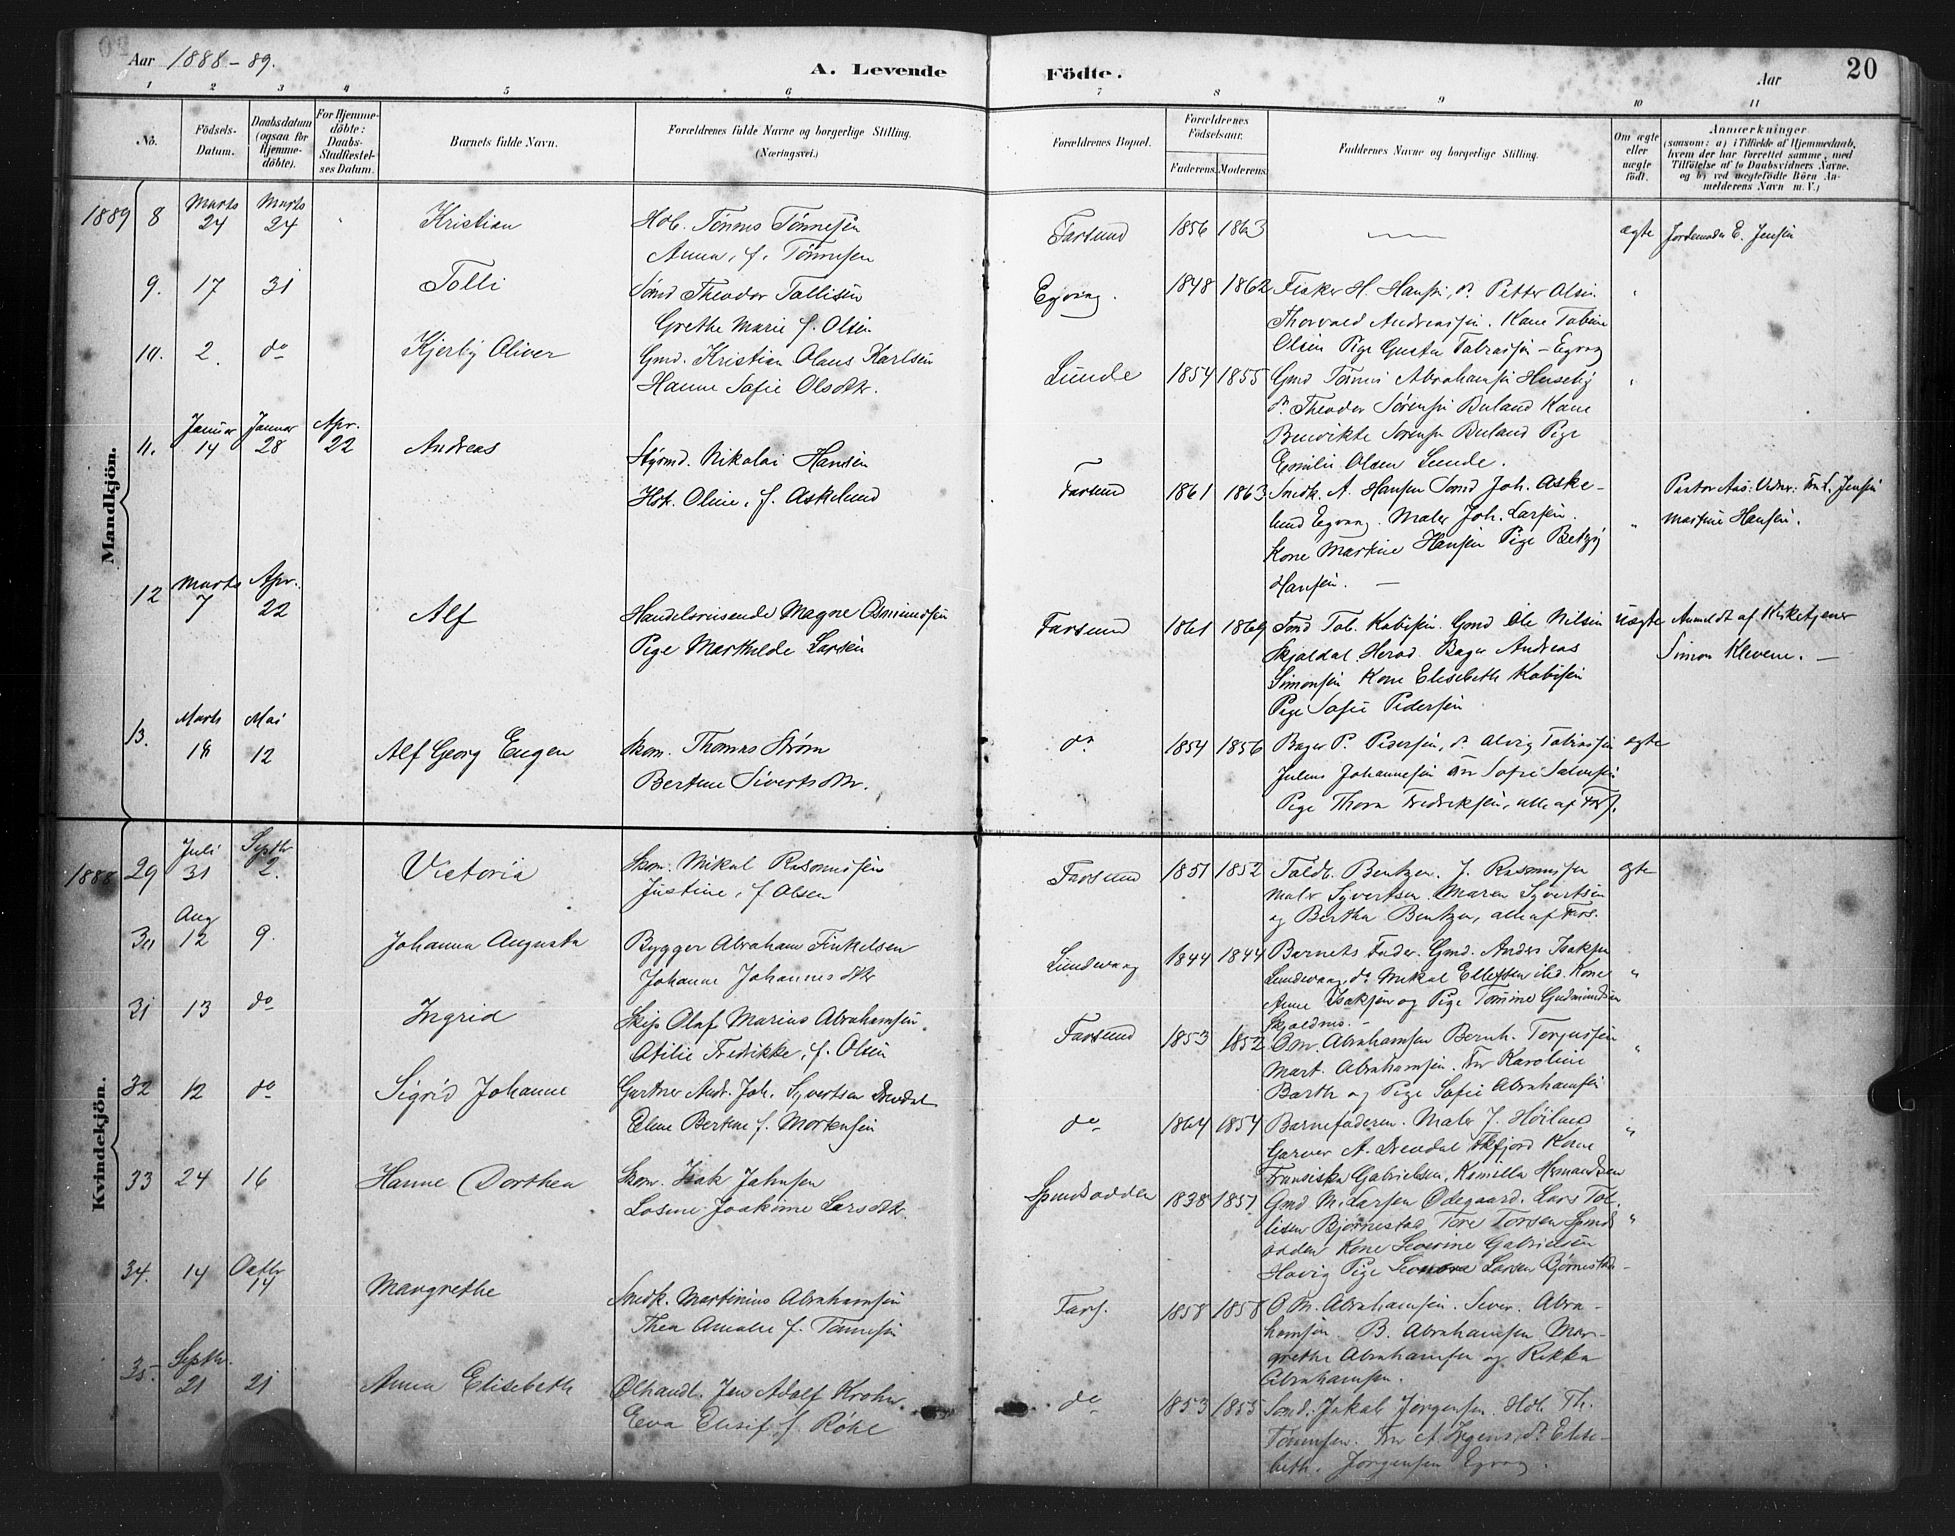 Aar 1888-89.
A. Levende
Födte.
Aar
20
1 2 3 4 5 6 7 8 9 10 11
No.
Födsels-Datum.
Daabsdatum (ogsaa for Hjemme-döbte).
For Hjemme-döbte: Daabs-Stadfæstel-ses Datum.
Barnets fulde Navn.
Forældrenes fulde Navne og borgerlige Stilling. (Næringsvei.)
Forældrenes Bopæl.
Forældrenes Födselsaar.
Faderens. Moderens.
Faddernes Navne og borgerlige Stilling.
Om ægte eller uægte födt.
Anmærkninger (saasom: a) i Tilfælde af Hjemmedaab, hvem der har forrettet samme, med Tilföielse af to Daabsvidners Navne. og b) ved uægtefödte Börn An-melderens Navn m. V.)
Mandkjön.
1889 8 Marts 24 Marts 24 Kristian
Tønnes Tønnesen
Anna, f. Tønnesen
Farsund 1856 1863 ægte Jordemoder E. Jensen
9. 17 31 Tolli
Theodor Tollisen
Grethe Marie f. Olsen
Egvaag. 1848 1862 H. Hansen, do Petter Olsen
Thorvald Andreassen. Kone Tobine
Olsen Pige Gusta Tobiassen - Egvaag
10. 2. do Kjerby Oliver
Gmd. Kristian Olaus Karlsen
Hanne Sofie Olsdtr.
Lunde 1854 1855 Gmd Tønnes Abrahamsen Huseby
do Theodor Sørensen Buland Kone
Benedikte Sørensen Buland Pige
Emilie Olsen Lunde.
11. Januar 14 Januar 28 Apr. 22 Andreas
Styrmd. Nikolai Hansen
Oline, f. Askelund
Farsund 1861 1863 Snedk. A. Hansen Joh. Aske-
lund Egvaag. Maler Joh. Larsen.
Kone Martine Hansen Pige Betzy
Hansen.
" Pastor Aas. Jensen
Martine Hansen.
12 Marts 7 Apr. 22 Alf
Handelsreisende Magne Osmundsen
Pige Mathilde Larsen
Farsund 1861 1869 Tob. Gmd Ole Nilsen
Skjoldal Herad. Bager Andreas
Simonsen Kone Elisebeth
Pige Sofie Pedersen
uægte Anmeldt af Kirketjener
Simon Klevene.
13. Marts 18 Mai 12 Alf Georg Eugen
Skom. Thomas Strøm
Bertine Sivertsdtr.
do 1854 1856 Bager P. Pedersen, do Tobiassen ægte
Julius Johannesen Sofie Salvesen
Pige Thora Fredriksen, alle af Fars.
Kvindekjön.
1888 29 Juli 31 Septbr 2. Victoria
Skom. Mikal Rasmussen
Justine, f. Olsen
Farsund 1851 1852 Toldb. Bentzen. J. Rasmussen ægte
Maler Syvertsen. Maren Syvertsen
og Bertha Bentzen, alle af Fars.
30 Aug 12 9. Johanna Augusta
Bygger Abraham Finkelsen
Johanne Johannesdtr
Lundevaag 1844 1844 Barnets Fader. Gmd. Anders Isaksen
Lundevaag, do Mikal Ellefsen ibd. Kone
Anne Isaksen og Pige Tomine Gudmundsen
Skjoldnes.
31 13 do Ingrid
Skips. Olaf Marius Abrahamsen
Otilie Fredrikke, f. Olsen
Farsund 1853 1852 O. M. Abrahamsen Bernh. Torgussen
Mart. Abrahamsen. Fru Karoline
Barth og Pige Sofie Abrahamsen
32 12 do Sigrid Johanne
Gartner Andr. Joh. Syvertsen Drevdal
Eline Bertine f. Mortensen
do 1864 1854 Barnefaderen. Maler J. Høiland
Garver A. Drevdal Kone
Fransiska Gabrielsen, Kamilla
33 24 16 Hanne Dorthea
Skom. Isak Jahnsen
Losine Joakime Larsdtr.
Spindsodden 1838 1851 Gmd M. Larsen Ødegaard. Lars Tol-
lisen Bjørnestad Tore Torsen Spinds-
odden Kone Severine Gabrielsen
Høvig Pige Leonora Larsen Bjørnestad
34. 14 Octbr 14 Margrethe
Snedk. Martinius Abrahamsen
Thea Amalie f. Tønnesen
Fars. 1858 1858 O. M. Abrahamsen. Sever. Abra-
hamsen. B. Abrahamsen Mar-
grethe Abrahamsen og Rikka
Abrahamsen.
35 Septbr. 21 21 Anna Elisebeth
Ølhandl. Jens Adolf Krohn.
Eva Elisif f. Røhe
do 1853 1855 Jakob Jørgensen. Th.
Tønnesen. Fru A. do Elise-
beth. Jørgensen Egvaag.